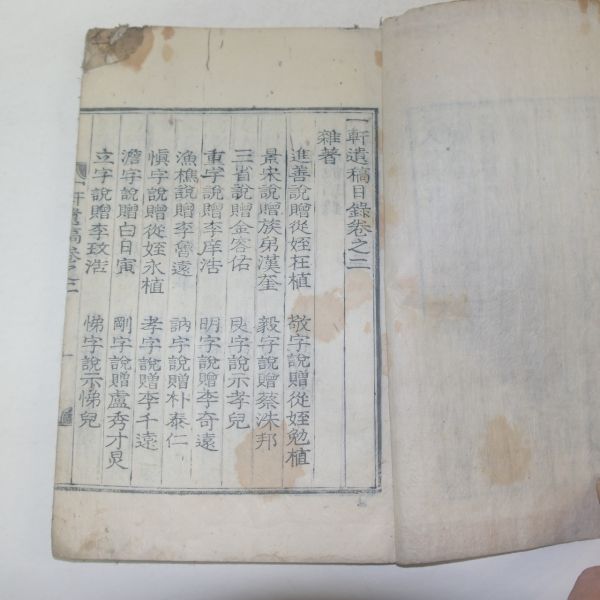 一軒遺稿目錄卷之二
雜著
進善說贈從姪枉植
敬字說贈從姪勉植
景宋說贈族弟漢奎
毅字說贈蔡洙邦
三省說贈金容佑
艮字說示孝兒
重字說贈李庠浩
明字說贈李奇遠
漁樵說贈李魯遠
訥字說贈朴泰仁
愼字說贈從姪永植
孝字說贈李千遠
澹字說贈白日寅
剛字說贈盧秀才炅
立字說贈李玟浩
悌字說示悌兒
一軒遺稿卷之二
一